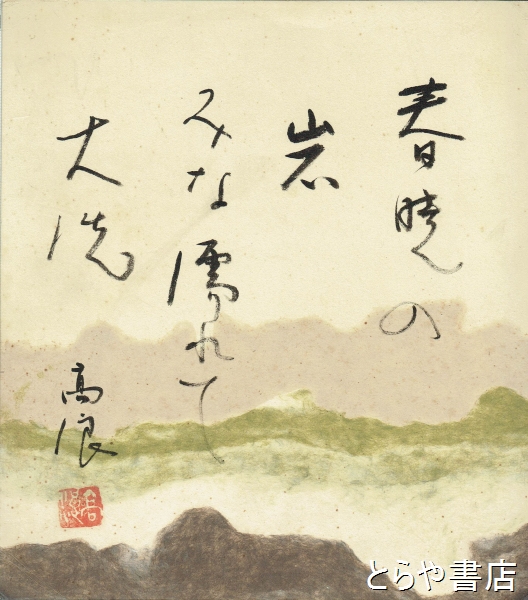 春暁の
岩
みな濡れて
大洗
高浪
とらや書店